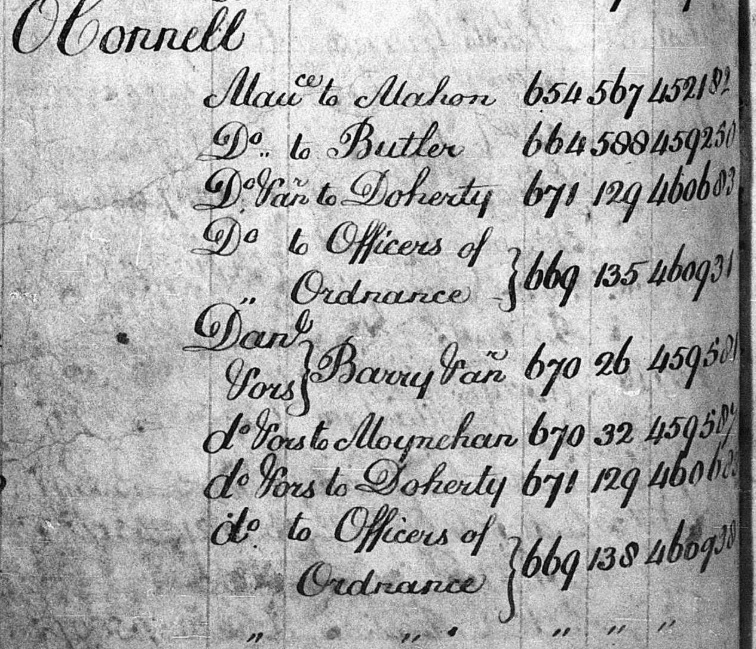 OConnell
Mauce to Mahon 654 567 452182
Do to Butler 664 588 459250
Do & an to Doherty 671 129 460683
Do to Officers of
" Ordnance } 669 135 460931
Danl
& ors } Barry & an 670 26 459581
do & ors to Moynehan 670 32 459587
do & ors to Doherty 671 129 460683
do to Officers of
Ordnance } 669 138 460938
" " " " "